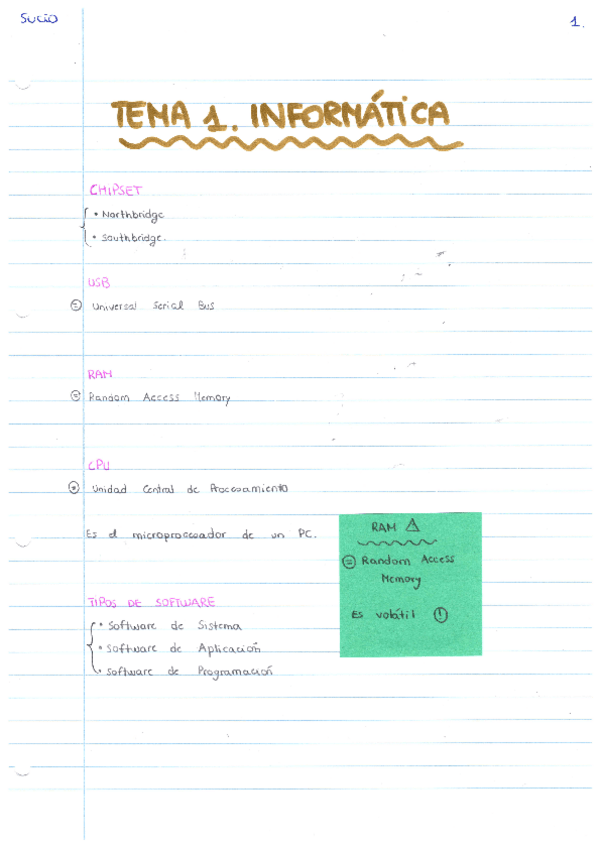 Sucio
1.
TEMA 1. INFORMÁTICA
CHIPSET
• Northbridge
• Southbridge.
USB
= Universal Serial Bus
RAM
= Random Access Memory
CPU
= Unidad Central de Procesamiento
Es el microprocesador de un PC.
RAM ⚠
= Random Access
Memory
Es volátil !
TIPOS DE SOFTWARE
• Software de Sistema
• Software de Aplicación
• Software de Programación